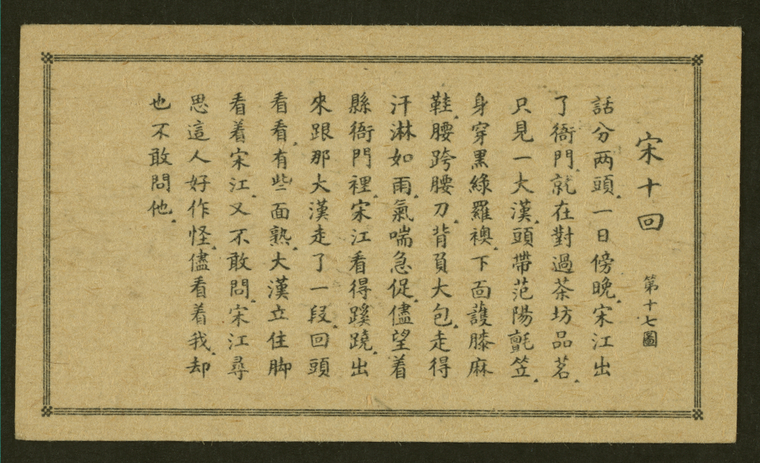 宋十回
第十七圖
話分兩頭．一日傍晚．宋江出
了衙門．就在對過茶坊品茗．
只見一大漢．頭帶范陽氈笠．
身穿黑綠羅襖．下面護膝麻
鞋．腰跨腰刀．背負大包．走得
汗淋如雨．氣喘急促．儘望着
縣衙門裡．宋江看得蹊蹺．出
來跟那大漢走了一段．回頭
看看．有些面熟．大漢立住脚
看着宋江．又不敢問．宋江尋
思這人好作怪．儘看着我．却
也不敢問他．